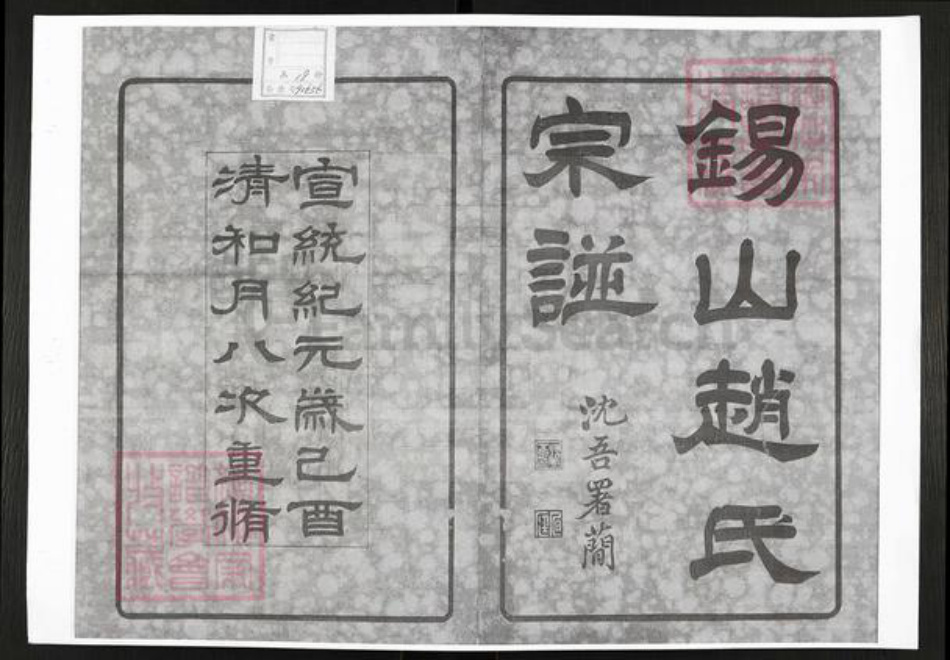 錫山趙氏
宗譜
沈吾署蕳
宣統紀元歲己酉
清和月八次重脩